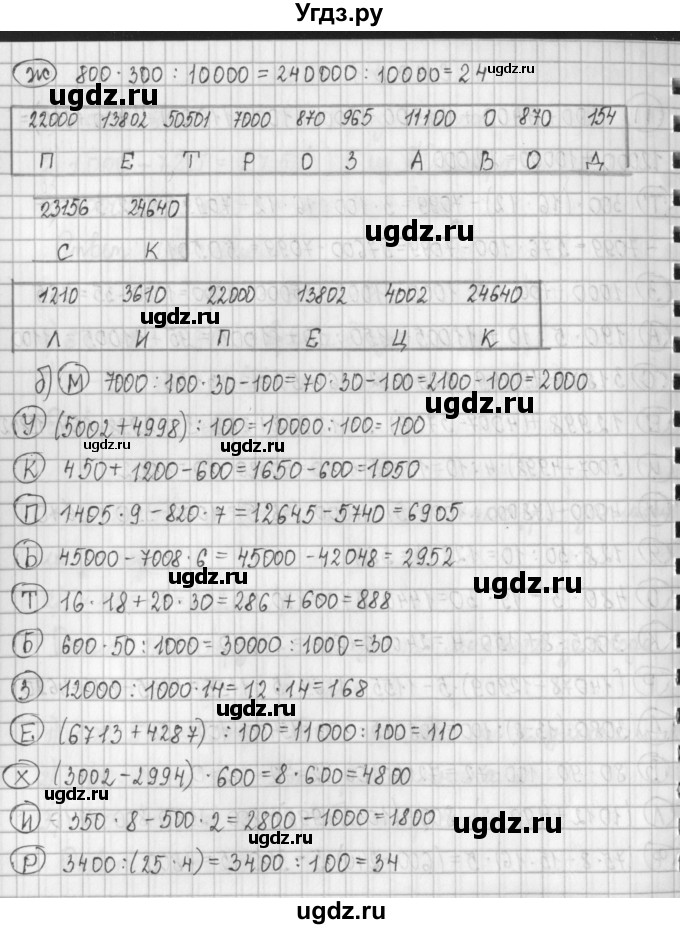 Угдз.ру
ж) 800 · 300 : 10000 = 240000 : 10000 = 24
22000 13802 50501 7000 870 965 11100 0 870 154
П Е Т Р О З А В О Д
23156 24640
С К
1210 3610 22000 13802 4002 24640
Л И П Е Ц К
б) М 7000 : 100 · 30 - 100 = 70 · 30 - 100 = 2100 - 100 = 2000
У (5002 + 4998) : 100 = 10000 : 100 = 100
К 450 + 1200 - 600 = 1650 - 600 = 1050
П 1405 · 9 - 820 · 7 = 12645 - 5740 = 6905
Ь 45000 - 7008 · 6 = 45000 - 42048 = 2952
Т 16 · 18 + 20 · 30 = 286 + 600 = 888
Б 600 · 50 : 1000 = 30000 : 1000 = 30
З 12000 : 1000 · 14 = 12 · 14 = 168
Е (6713 + 4287) : 100 = 11000 : 100 = 110
Х (3002 - 2994) · 600 = 8 · 600 = 4800
И 350 · 8 - 500 · 2 = 2800 - 1000 = 1800
Р 3400 : (25 · 4) = 3400 : 100 = 34
ugdz.ru